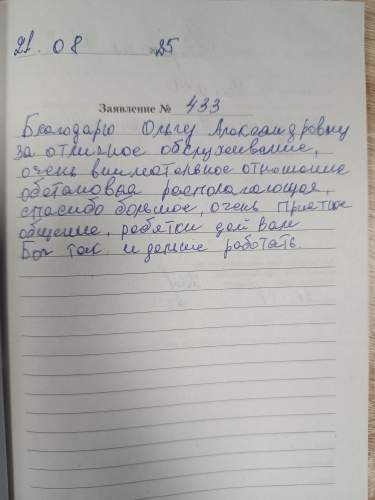 21. 08 2025
Заявление № 433
Благодарю Ольгу Александровну
за отличное обслуживание,
очень внимательное отношение
обстановка располагающая,
спасибо большое, очень приятное
общение, ребятки дай вам
Бог так и дальше работать.